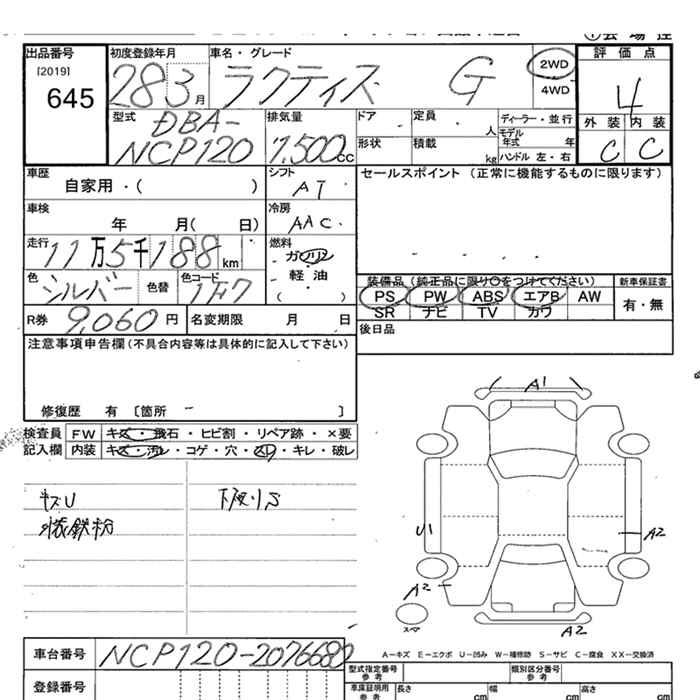 出品番号 初度登録年月 車名・グレード 2WD 評価点
[2019] 283月 ラクティス G 4WD 4
645
型式 排気量 ドア 定員 ディーラー・並行 外装 内装
DBA- 人 モデル年式 年
NCP120 1,500cc 形状 積載 kg ハンドル 左・右 C C
車歴 シフト セールスポイント (正常に機能するものに限ります)
自家用・( ) AT
車検 冷房
年 月( 日) AAC
走行 燃料
11万5千188km ガソリン
軽・油
色 色替 色コード ( ・ ) 装備品 (純正品に限り○をつけてください) 新車保証書
シルバー 1F7 PS PW ABS エアB AW 有・無
R券 9,060円 名変期限 月 日 SR ナビ TV カワ
注意事項申告欄(不具合内容等は具体的に記入して下さい) 後日品
修復歴 有 〔箇所 〕
検査員 FW キズ・飛石・ヒビ割・リペア跡・×要
記入欄 内装 キズ・汚レ・コゲ・穴・スレ・キレ・破レ
A1
キズU 下廻りS
鉄粉
U1 A2
A2
スペア
A2
A−キズ E−エクボ U−凹み W−補修跡 S−サビ C−腐食 XX−交換済
車台番号 NCP120-2076682
型式指定番号 参考 類別区分番号 参考
登録番号 車庫証明用 参考 長さ cm 幅 cm 高さ cm